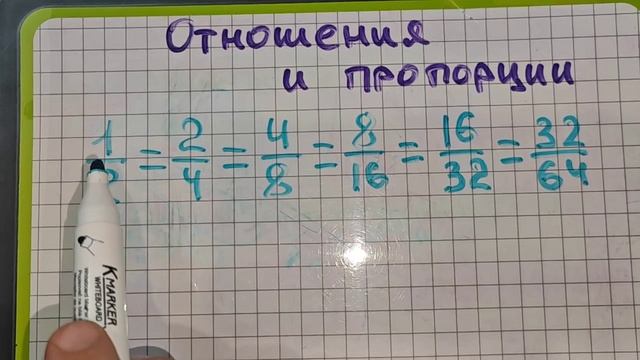 Отношения
и пропорции
1/2 = 2/4 = 4/8 = 8/16 = 16/32 = 32/64
KMARKER
WHITEBOARD